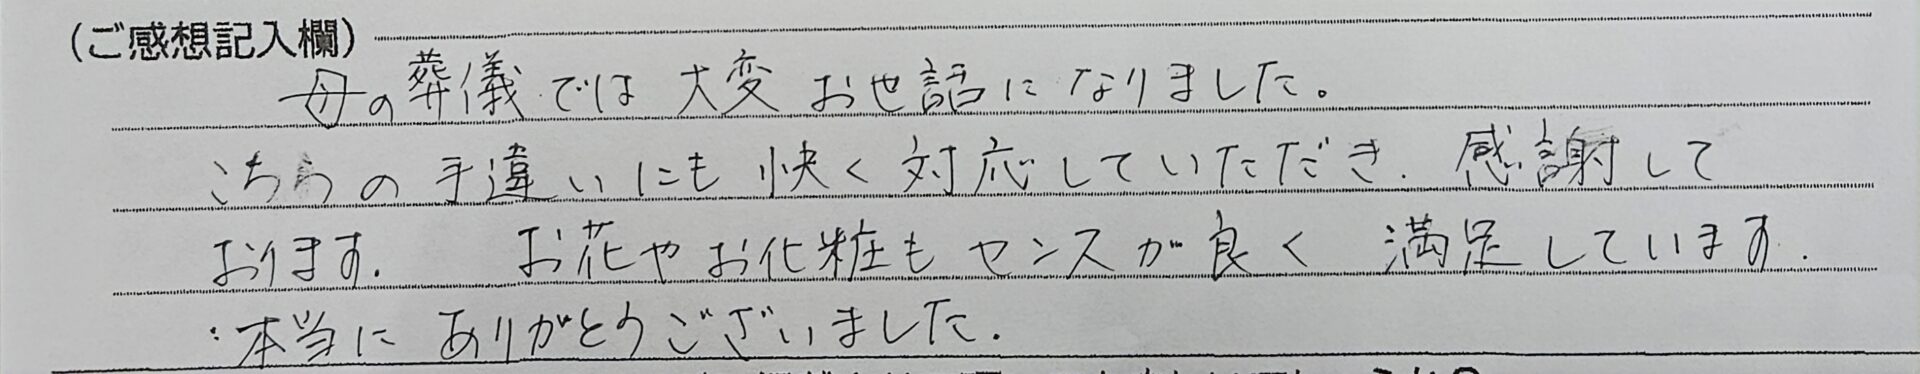 (ご感想記入欄)
母の葬儀では大変お世話になりました。
こちらの手違いにも快く対応していただき.感謝して
おります. お花やお化粧もセンスが良く 満足しています.
本当にありがとうございました.